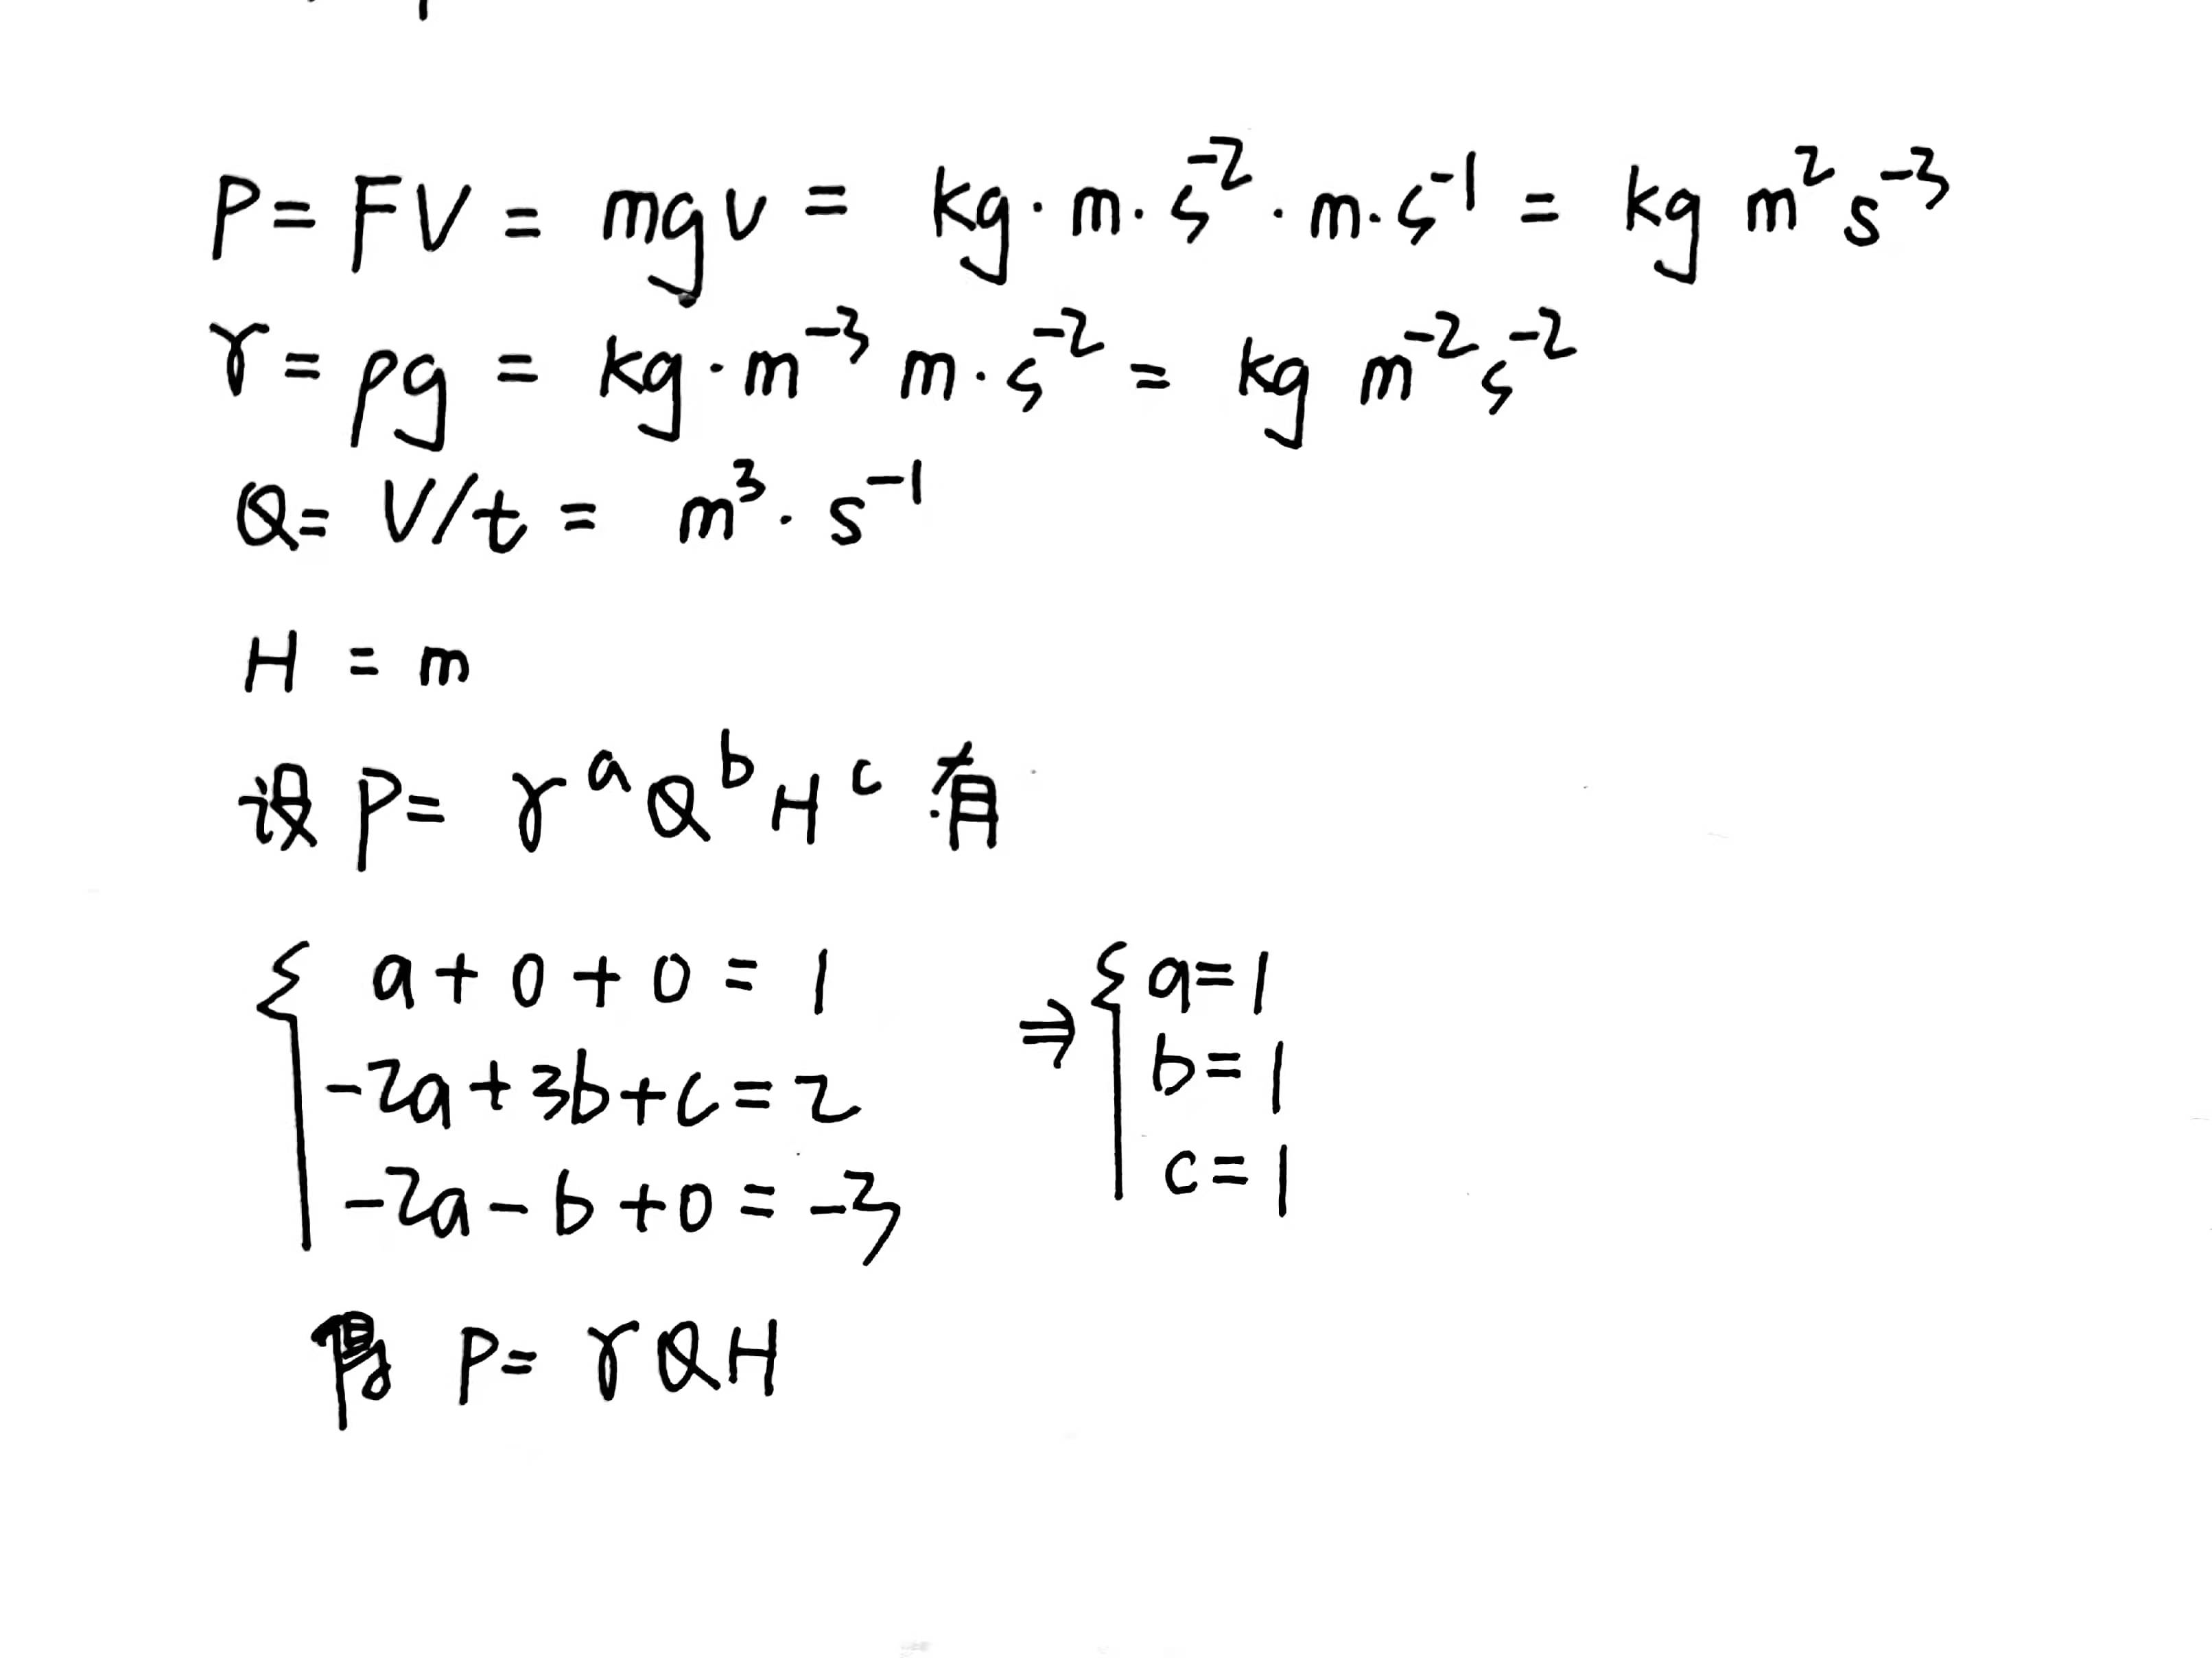 P = FV = mgv = kg·m·s⁻²·m·s⁻¹ = kg m² s⁻³
γ = ρg = kg·m⁻³ m·s⁻² = kg m⁻² s⁻²
Q = V/t = m³·s⁻¹
H = m
设 P = γᵃ Qᵇ Hᶜ 有
{ a + 0 + 0 = 1 ⇒ { a = 1
-2a + 3b + c = 2 b = 1
-2a - b + 0 = -3 c = 1
得 P = γQH